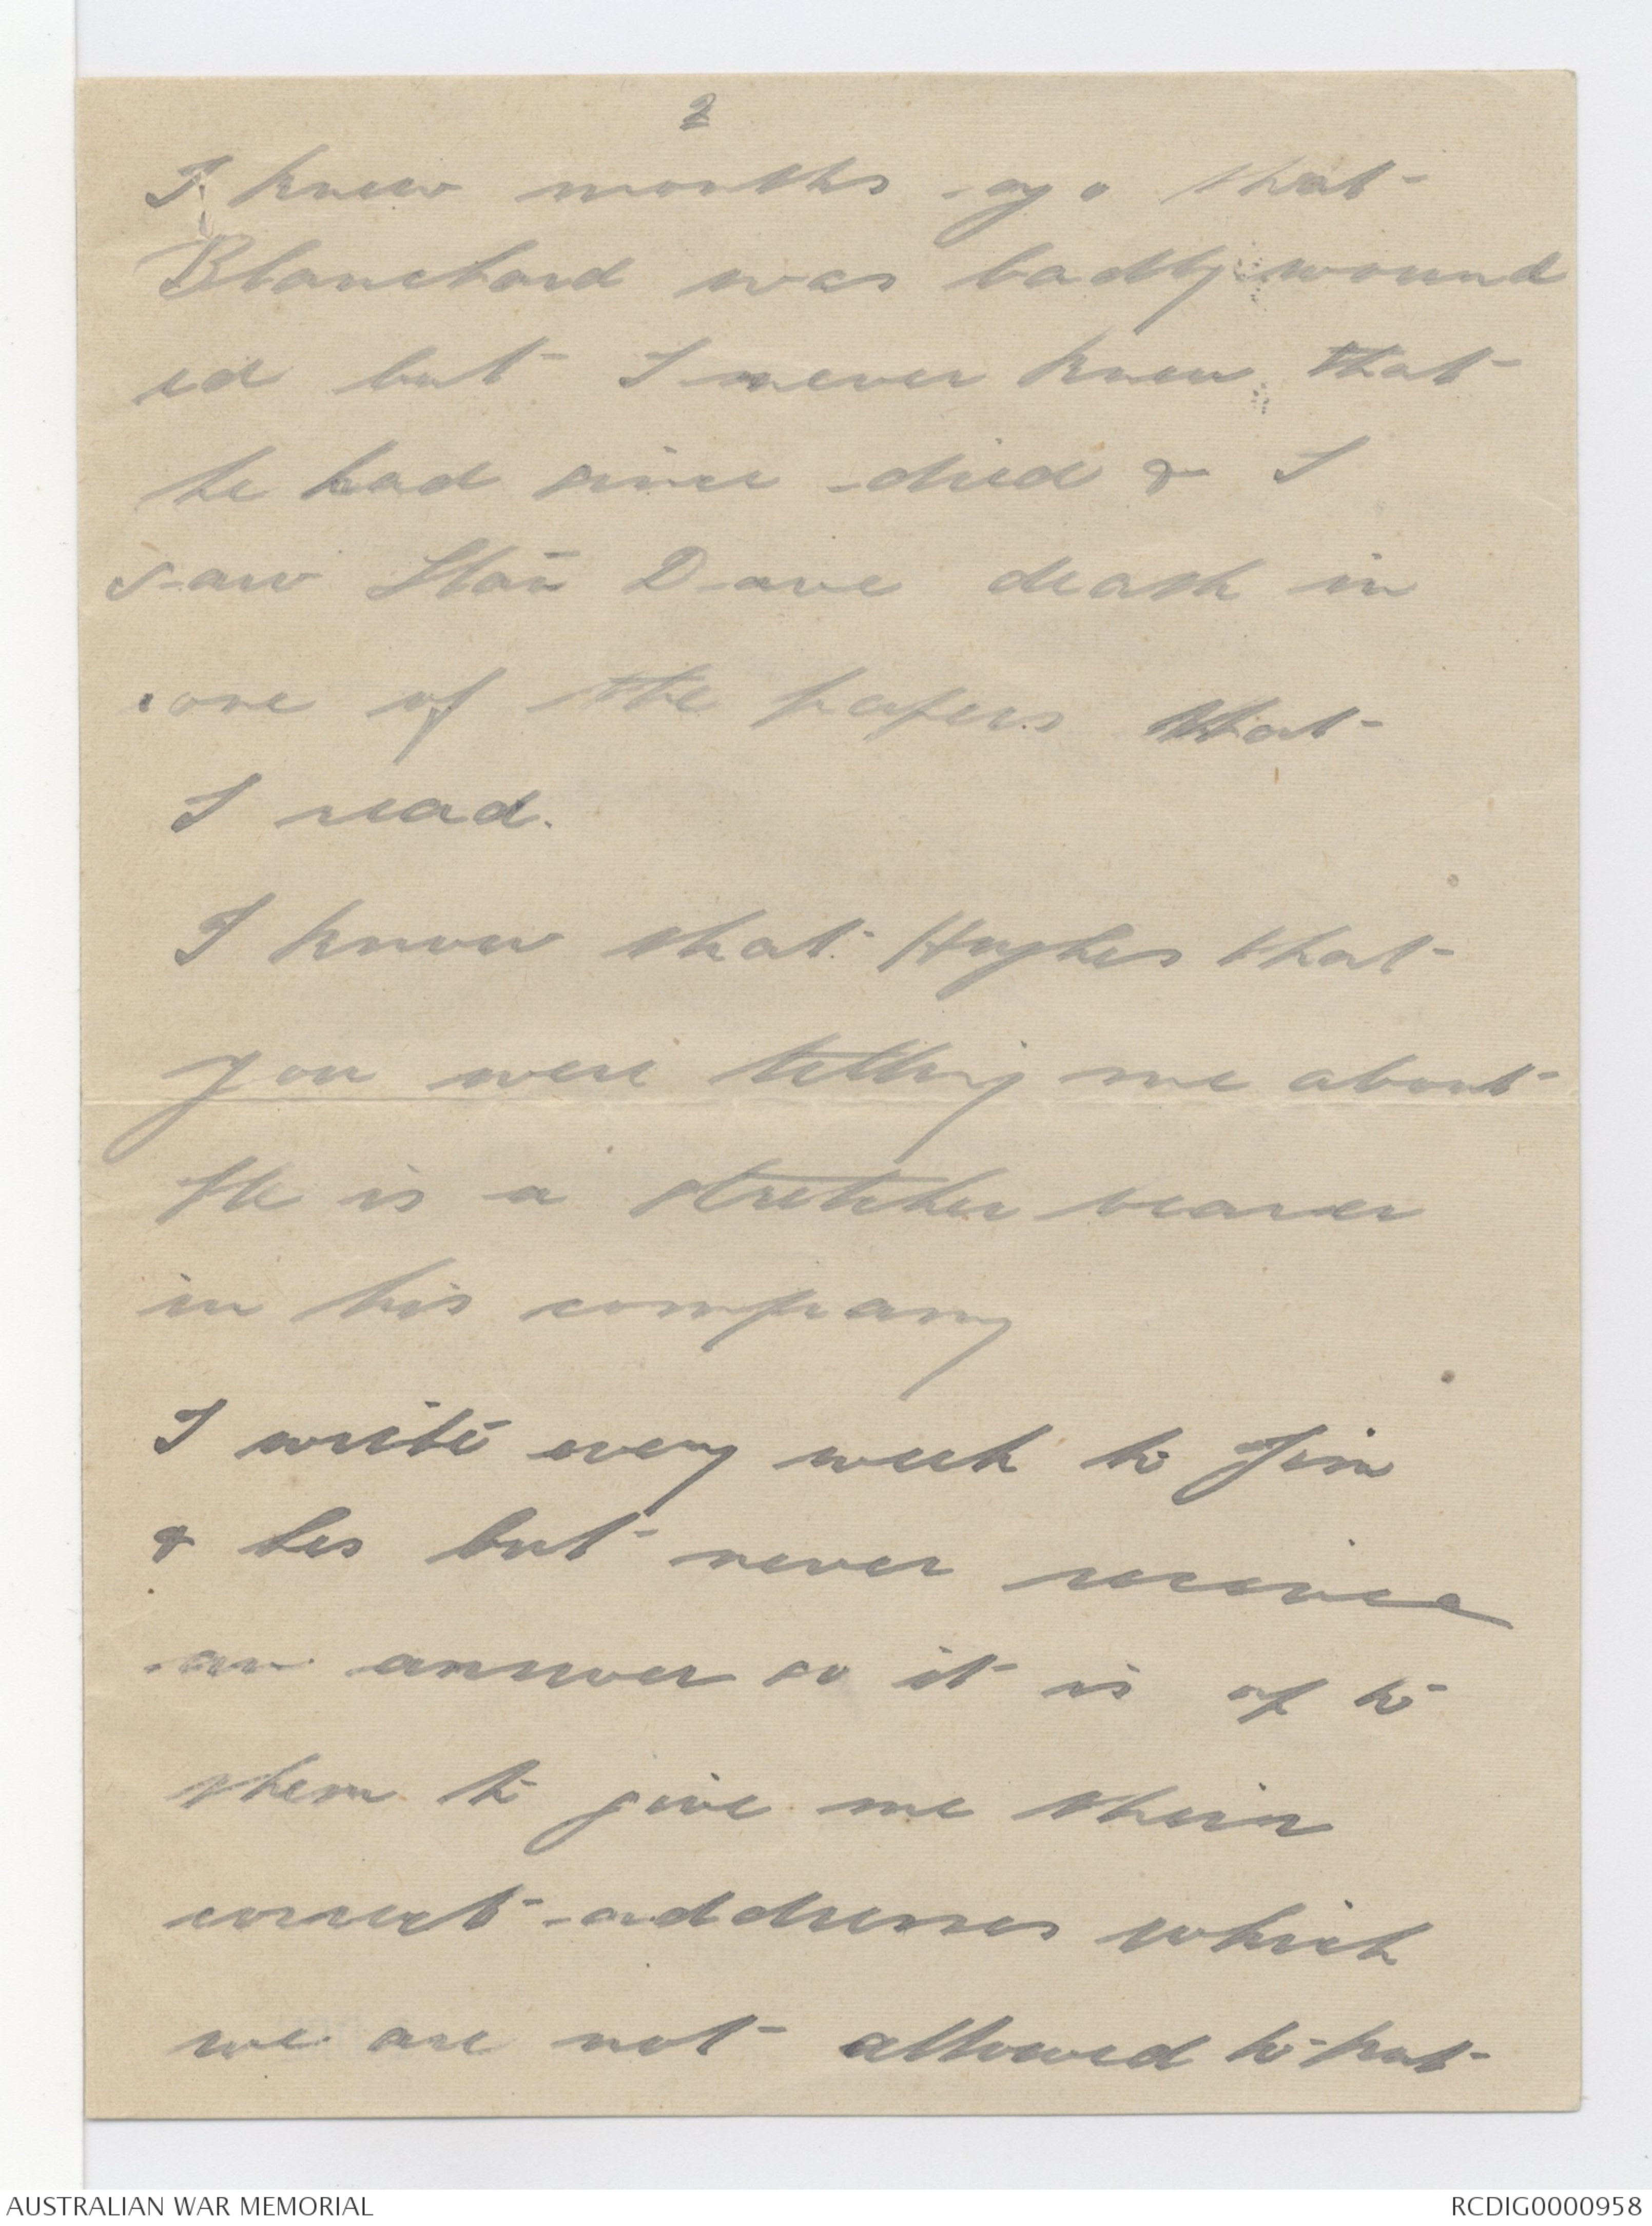 2
I knew months ago that
Blanchard was badly wound
ed but I never knew that
he had since died & I
saw Stan Dave death in
one of the papers that
I read.
I know that Hughes that
you were telling me about
He is a stretcher bearer
in his company
I write every week to Jim
& Les but never receive
an answer so it is up to
them to give me their
correct addresses which
we are not allowed to put
AUSTRALIAN WAR MEMORIAL
RCDIG0000958